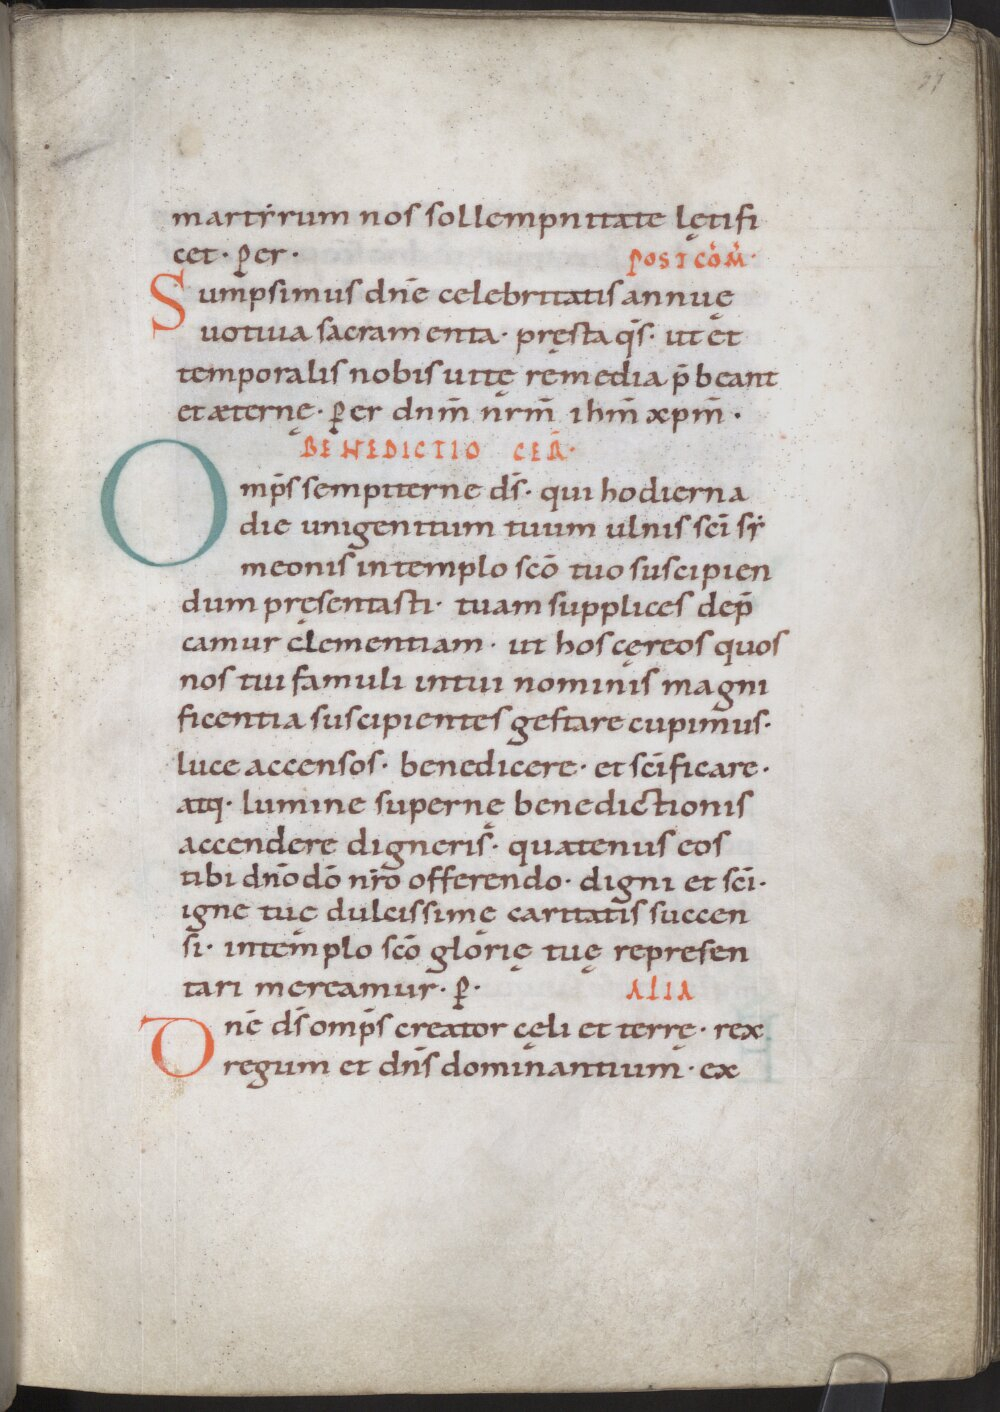 37
martẏrum nos sollempnitate lętifi
cet· ꝑer· POSTCŌM̄·
Sumpsimus dn̄e celebritatis annuę
uotiua sacramenta· pręsta qs̄· ut et
temporalis nobis uitę remedia p̄beant
et æternę· ꝑer dnm̄ nr̄m ihm̄ xpm̄·
BENEDICTIO CER̄·
Omp̄s sempiterne ds̄· qui hodierna
die unigenitum tuum ulnis scī sẏ
meonis in templo scō tuo suscipien
dum pręsentasti· tuam supplices dep̄
camur clementiam· ut hos cęreos quos
nos tui famuli in tui nominis magni
ficentia suscipientes gestare cupimus·
luce accensos· benedicere· et scīficare·
atq· lumine supernę benedictionis
accendere digneris· quatenus eos
tibi dn̄o dō nr̄o offerendo· digni et scī·
igne tuę dulcissimę caritatis succen
si· in templo scō glorię tuę represen
tari mereamur· ꝑ· ALIA
Dn̄e ds̄ omp̄s creator cęli et terrę· rex
regum et dn̄s dominantium· ex